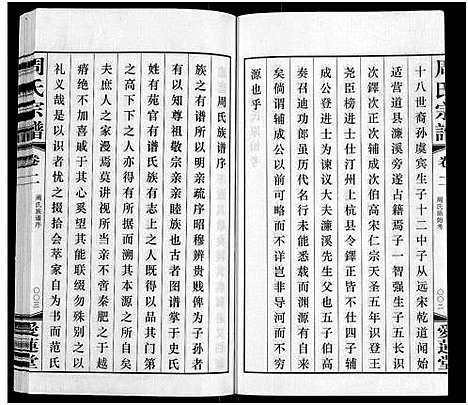 周氏宗譜
卷二
周氏族始考
〇〇二
十八世裔孙虞宾生子十二中子从远宋乾道间始
适营道县濂溪旁遂占古籍焉子一智强生子五长识
次鐸次正次辅成次伯高宋仁宗天圣五年识登王
尧臣榜进士仕汀州上杭县令鐸正皆不仕四子辅
成公登进士为谏议大夫濂溪先生父也五子伯高
奏召迪功郎古代有名行未能悉载而鐸又以岁远
矣倘谓辅成以前可略而不详岂非导河而不寻其
源也乎
周氏族谱序
族之有谱所以明亲疏序昭穆辨贵贱俾为子孙者
有以知尊祖敬宗亲亲睦族也古者图谱掌于史氏
姓有苑官有谱氏族有志上之人既得以品其第广
其恩下之人亦有所据而溯其本源之所自矣今士
夫庶人之家漫焉莫讲视宗亲不啻秦肥之于越
瘠绝不加喜戚于其心奚望其能收族属明恩爱兴
礼义哉是以识者忧之掇拾会萃家自为书而范氏
周氏宗譜
卷二
周氏族谱序
〇〇三
愛蓮堂
愛蓮堂